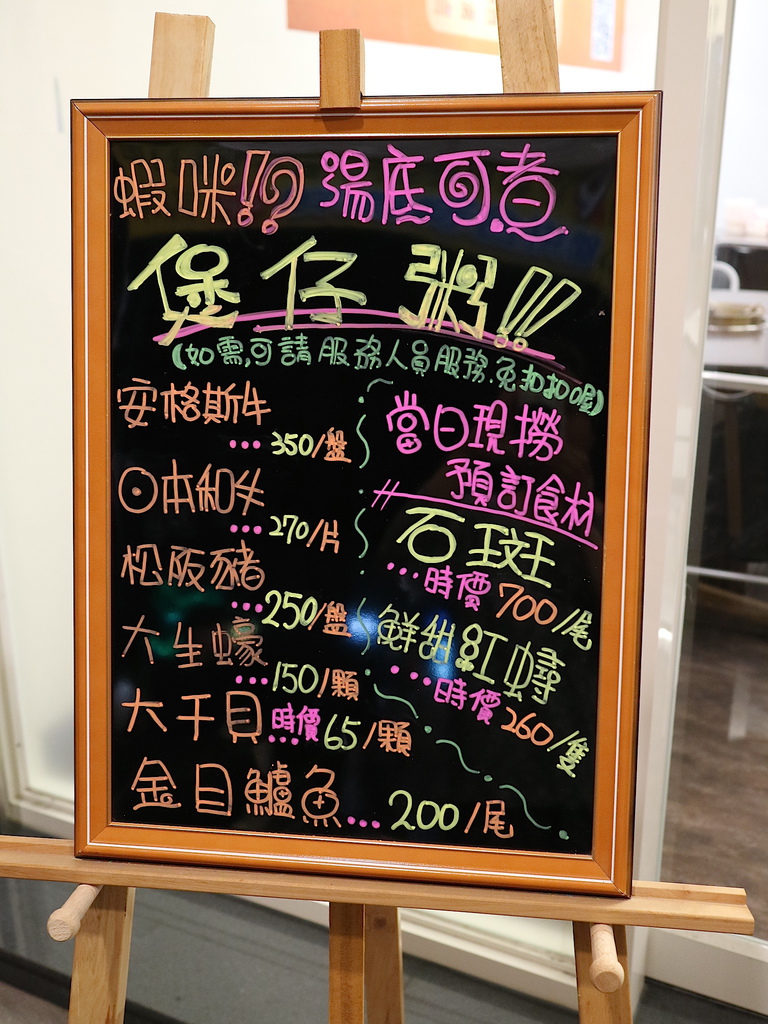 蝦咪!? 湯底可煮
煲仔粥!!
(如需,可請服務人員服務.免扣扣喔)
安格斯牛
...350/盤
日本和牛
...270/片
松阪豬
...250/盤
大生蠔
...150/顆
大干貝時價...65/顆
金目鱸魚...200/尾
當日現撈
預訂食材
石斑
...時價700/尾
鮮甜紅蟳
...時價260/隻